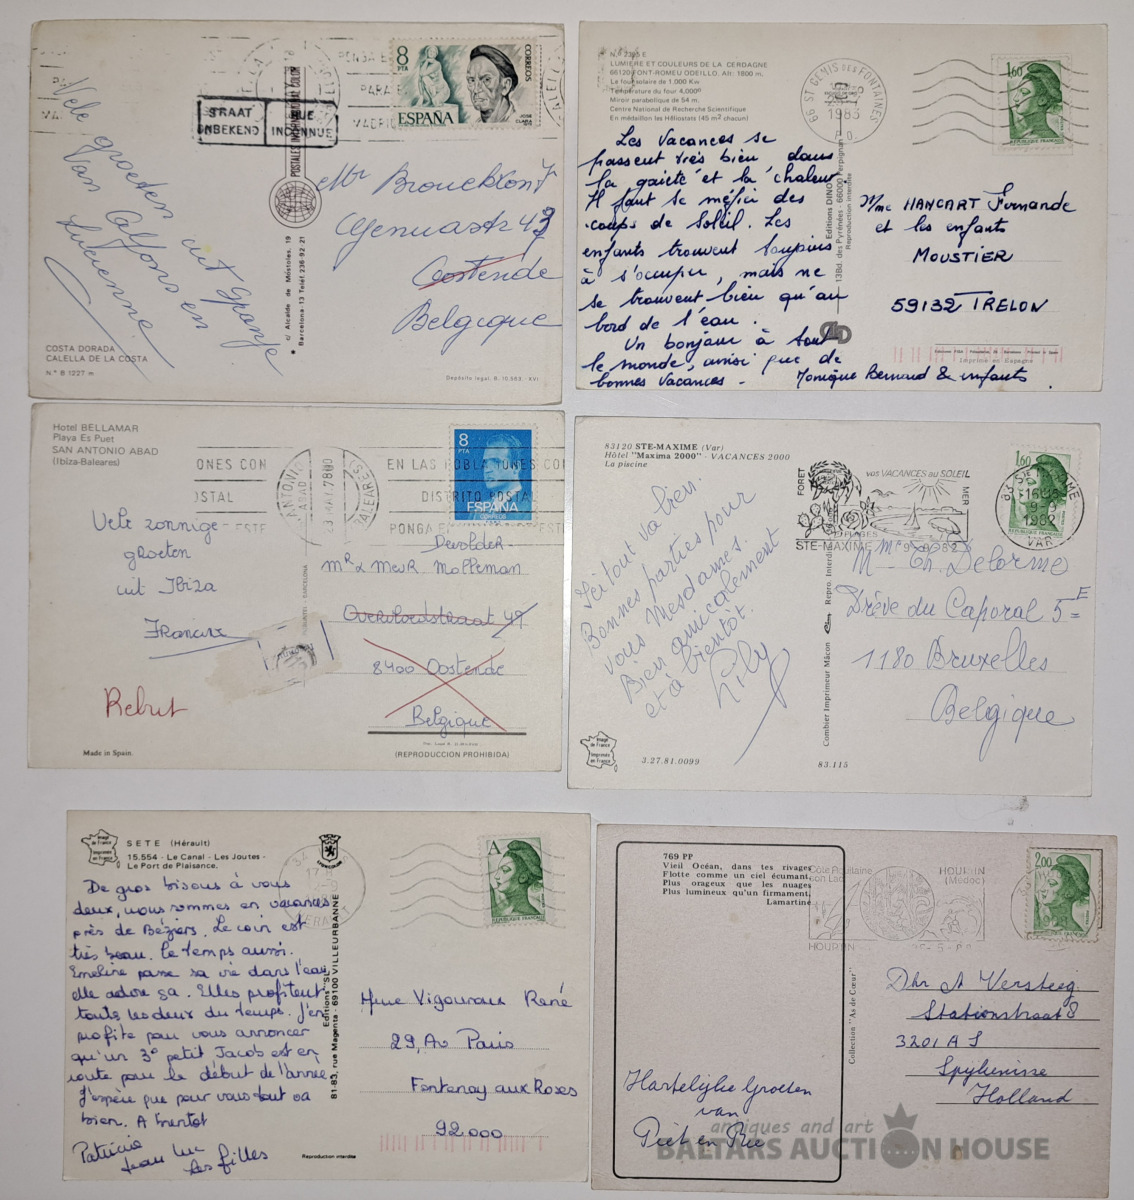 8
PTA
CORREOS
ESPAÑA
JOSE CLARA
STRAAT
ONBEKEND
RUE
INCONNUE
POSTALES INTERNATIONAL COLOR
c/ Alcalde de Móstoles, 19
Barcelona-13 Telef. 236-92-21
Vele groeten uit Spanje
Van
en
Lucienne
Mr
49
Oostende
Belgique
COSTA DORADA
CALELLA DE LA COSTA
N.º B 1227 m
Depósito legal, B. 10.983.-XVI
LUMIERE ET COULEURS DE LA CERDAGNE
66120 FONT-ROMEU ODEILLO. Alt: 1800 m.
Le four solaire de 1.000 Kw
Température du four 4.000º
Miroir parabolique de 54 m.
Centre National de Recherche Scientifique
En médaillon les Héliostats (45 m² chacun)
66 ST GENIS DES FONTAINES
1983
P.O.
1,60
REPUBLIQUE FRANÇAISE
Les Vacances se
passent très bien dans
la gaieté et la chaleur
Il faut se méfier des
coups de soleil. Les
enfants trouvent toujours
à s'occuper, mais ne
se trouvent bien qu'au
bord de l'eau.
Un bonjour à tout
le monde, ainsi que de
bonnes vacances -
Monique Bernard & enfants.
Editions DINO
13Bd. des Pyrénées - 66000 Perpignan
Reproduction interdite
Mme HANCART Fernande
et les enfants
MOUSTIER
59132 TRELON
Imprimé en Espagne
Hotel BELLAMAR
Playa Es Puet
SAN ANTONIO ABAD
(Ibiza-Baleares)
EN LAS POBLACIONES CON
DISTRITO POSTAL
8
PTA
ESPAÑA
CORREOS
Vele zonnige
groeten
uit Ibiza
Francine
Rebut
Devolder
Mr & Mevr Molleman
8400 Oostende
Belgique
Made in Spain.
(REPRODUCCION PROHIBIDA)
83120 STE-MAXIME (Var)
Hôtel "Maxima 2000" - VACANCES 2000
La piscine
FORET
vos VACANCES au SOLEIL
MER
PLAGES
STE-MAXIME
83 STE MAXIME
1982
VAR
1,60
Ici tout va bien.
Bonnes parties pour
vous Mesdames.
Bien amicalement
et à bientôt.
Lily
Ch. Delorme
Drève du Caporal 5 E
1180 Bruxelles
Belgique
Combier Imprimeur Mâcon
Repro. Interdite
Image de France
Imprimée en France
3.27.81.0099
83.115
Image de France
Imprimée en France
SETE (Hérault)
15.554 - Le Canal - Les Joutes -
Le Port de Plaisance.
A
REPUBLIQUE FRANÇAISE
De gros bisous à vous
deux, nous sommes en vacances
près de Beziers. Le coin est
très beau. le temps aussi.
Emeline passe sa vie dans l'eau
elle adore ça. Elles profitent
toutes les deux du temps. J'en
profite pour vous annoncer
qu'un 3e petit Jacob est en
route pour le début de l'année
J'espère que pour vous tout va
bien. A bientot
Patricia
Jean Luc
Les filles
Editions "SL"
81-83, rue Magenta - 69100 VILLEURBANNE
Mme Vigouroux René
29, Av Paris
Fontenay aux Roses
92000
Reproduction interdite
769 PP
Vieil Océan, dans tes rivages
Flotte comme un ciel écumant,
Plus orageux que les nuages
Plus lumineux qu'un firmament,
Lamartine
HOURTIN
(Médoc)
HOURTIN
2,00
Collection "As de Cœur"
Hartelijke Groeten
van
Piet en Rie
Dhr A Versteeg
Stationstraat 8
3201 AS
Spijkenisse
Holland
antiques and art
BALTARS AUCTION HOUSE